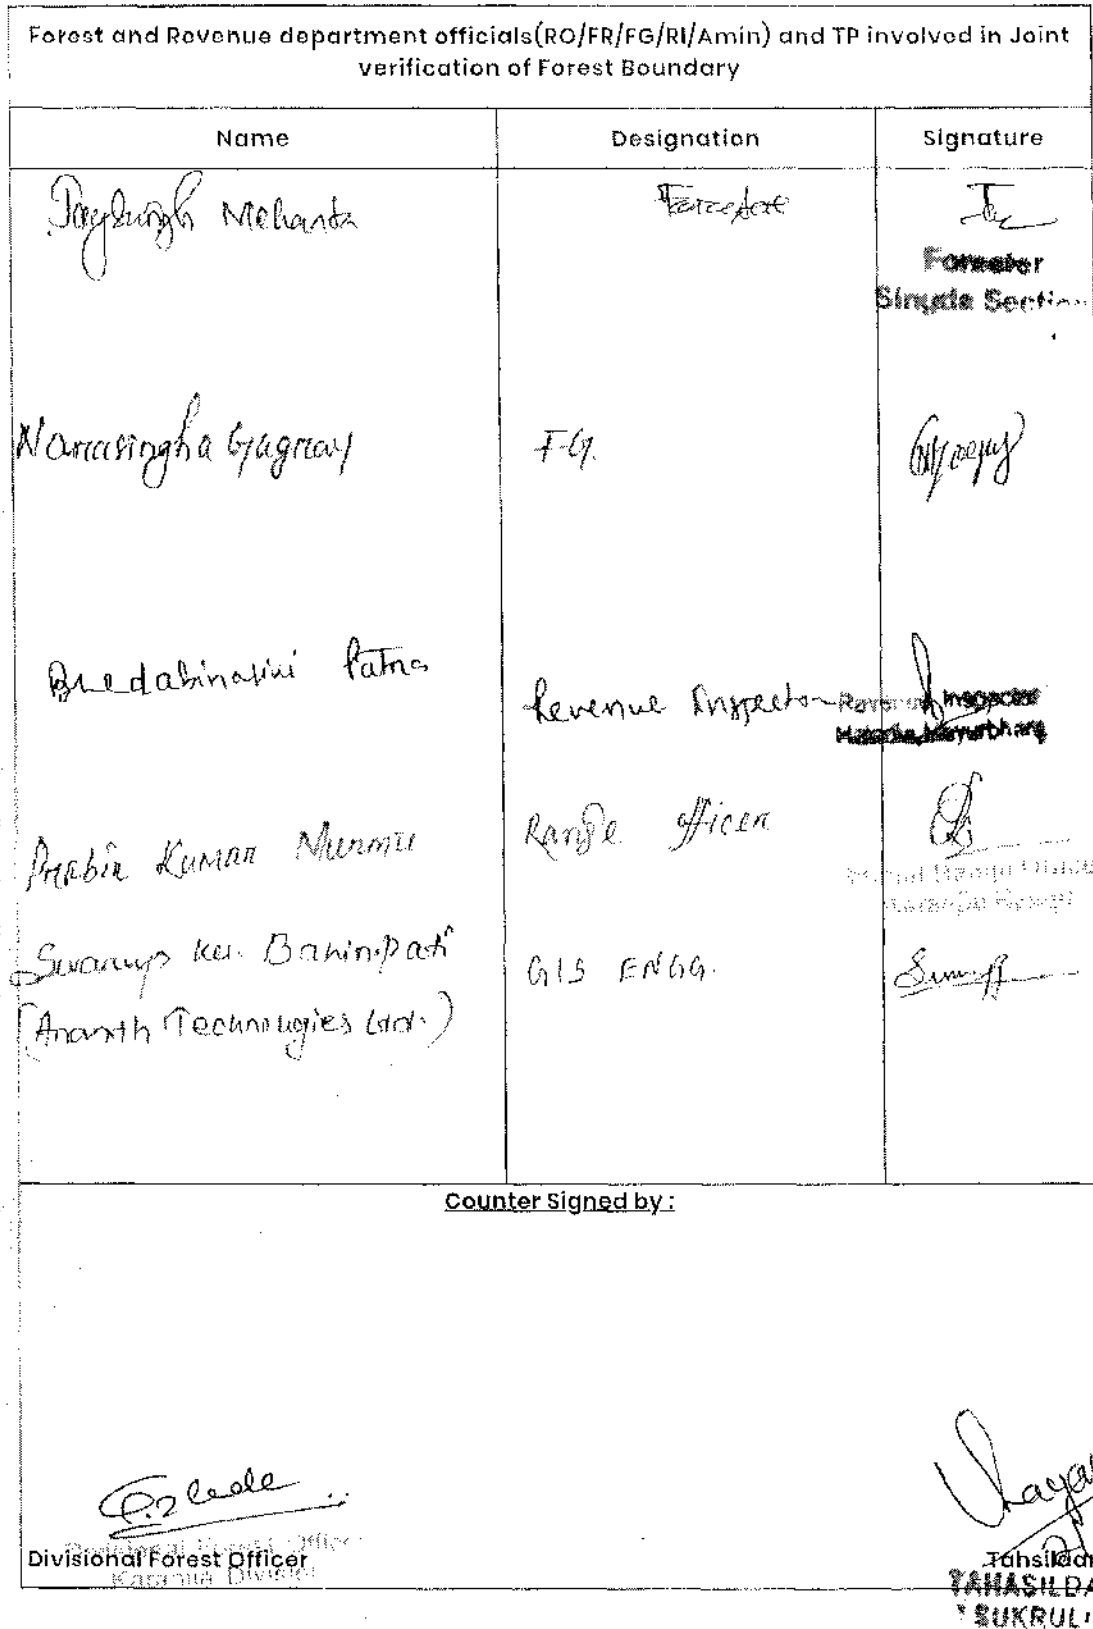 Forest and Revenue department officials(RO/FR/FG/RI/Amin) and TP involved in Joint
verification of Forest Boundary
Name Designation Signature
Mohanta Forester
Forester
Section
Narasingha Gagray F.G.
Patra
Revenue Inspector Revenue Inspector
Mayurbhanj
Prabir Kumar Murmu Range Officer
Swarup Ku. Bahinipati GIS ENGG.
(Ananth Technologies Ltd.)
Counter Signed by :
Divisional Forest Officer
Divisional Forest Officer
Karanjia Division
Tahsildar
TAHASILDA
SUKRULI